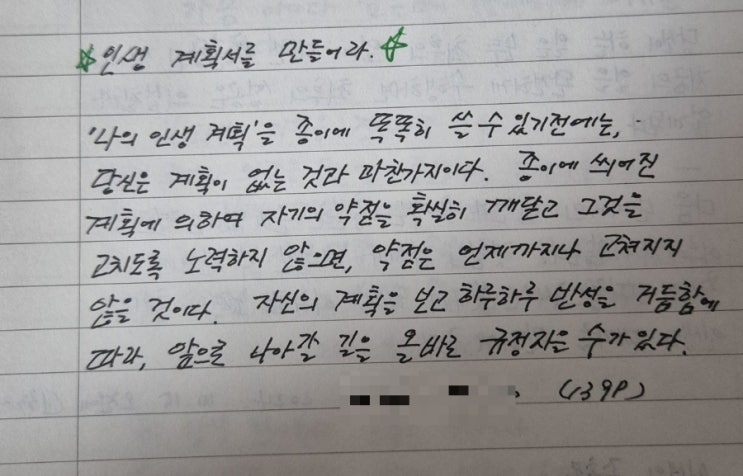 ☆인생 계획서를 만들어라.☆
'나의 인생 계획'을 종이에 똑똑히 쓸 수 있기전에는,
당신은 계획이 없는 것과 마찬가지이다. 종이에 씌어진
계획에 의하여 자기의 약점을 확실히 깨닫고 그것을
고치도록 노력하지 않으면, 약점은 언제까지나 고쳐지지
않을 것이다. 자신의 계획을 보고 하루하루 반성을 거듭함에
따라, 앞으로 나아갈 길을 올바로 규정지을 수가 있다.
(139P)